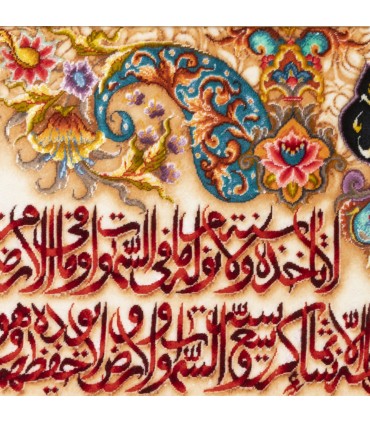 لا تاخذه سنة ولا نوم له ما في السموات وما في الارض
الا بما شا وسع كرسيه السموات والارض ولا يوده حفظهما وهو